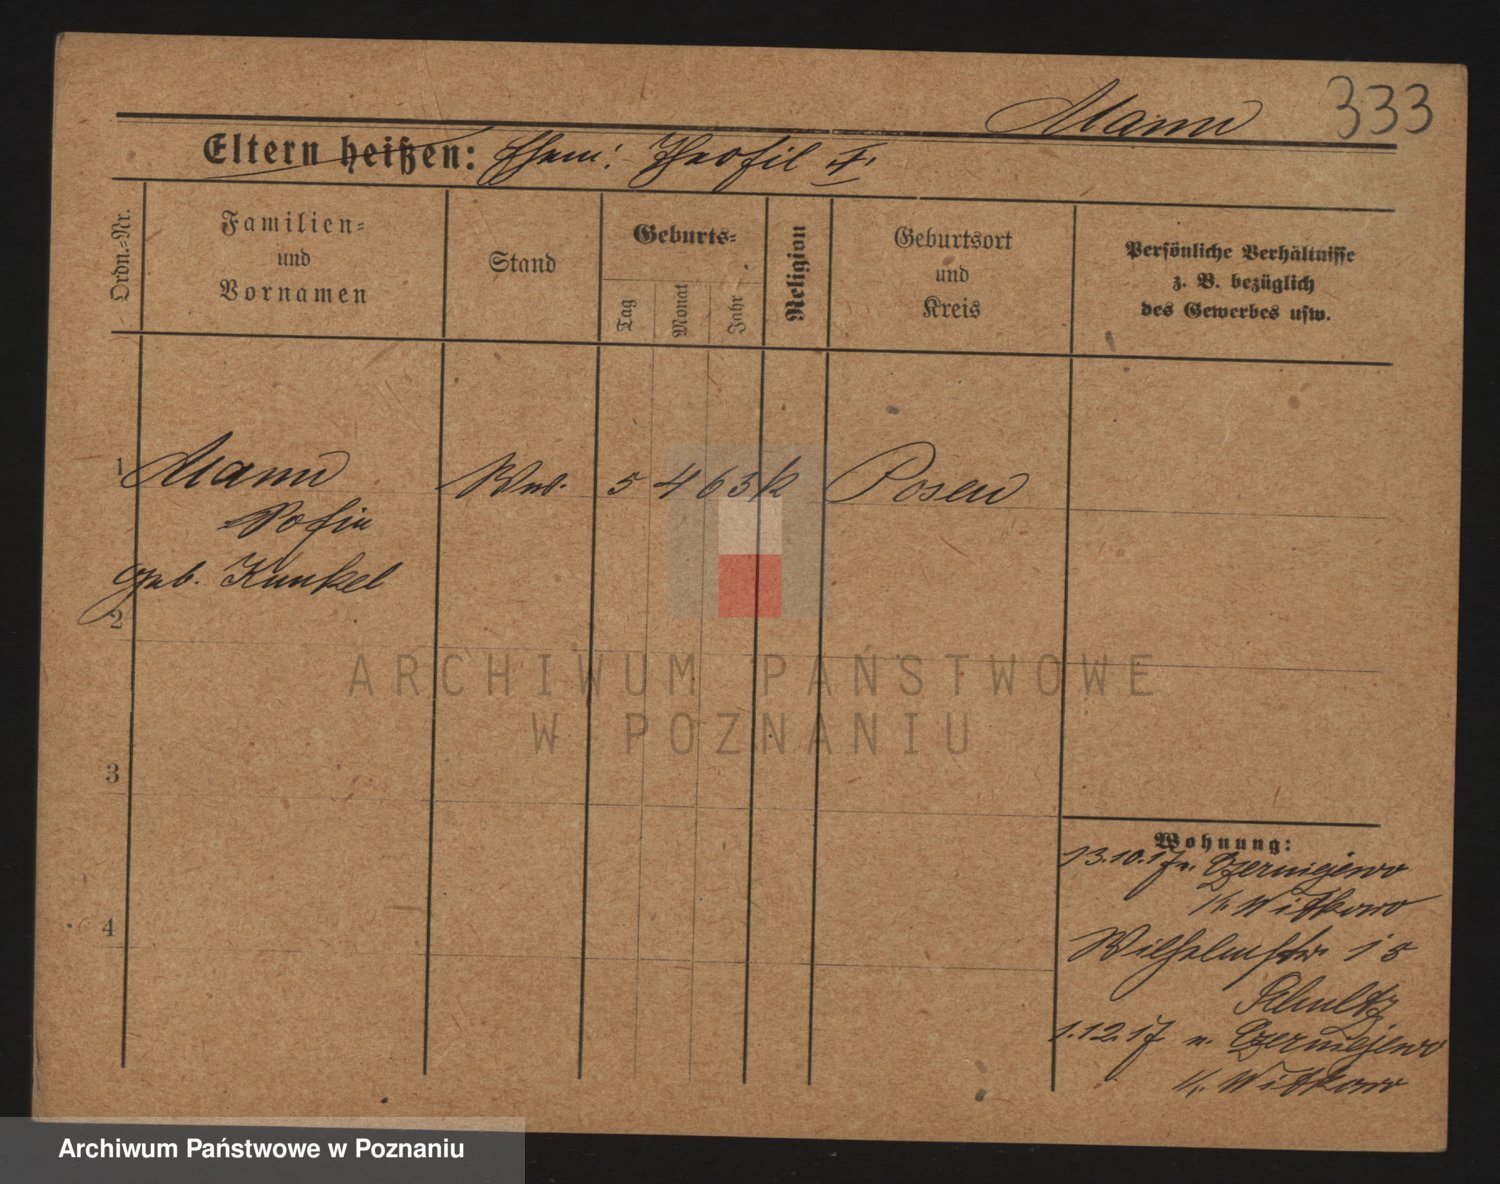 Mann 333
Eltern heißen: Ehem: Theofil †
Ordn.=Nr.
Familien=
und
Vornamen
Stand
Geburts=
Tag
Monat
Jahr
Religion
Geburtsort
und
Kreis
Persönliche Verhältnisse
z. B. bezüglich
des Gewerbes usw.
1 Mann Ww. 5 4 63 k Posen
Sofie
geb. Kunkel
2
3
4
Wohnung:
13.10.17 v. Czerniejewo
Kr. Witkowo
Wilhelmstr. 15
Schultz
1.12.17 n. Czerniejewo
Kr. Witkowo
ARCHIWUM PAŃSTWOWE
W POZNANIU
Archiwum Państwowe w Poznaniu